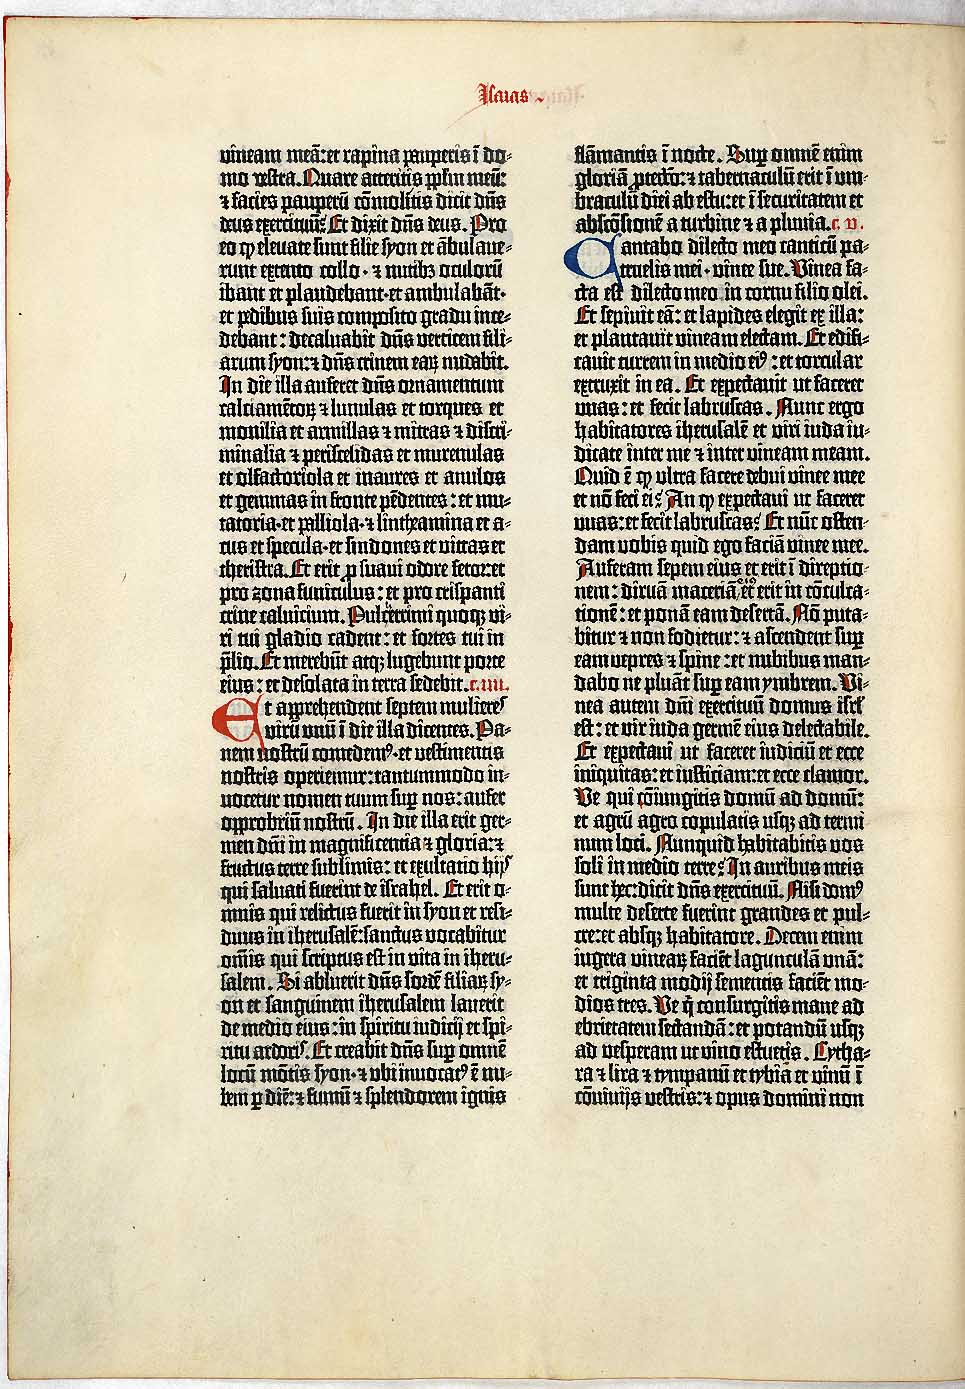 Isaias
vineam meā: et rapina pauperis ī do-
mo vestra. Quare atteritis pp̄lm meū:
⁊ facies pauperū cōmolitis dicit dn̄s
deus exercituū? Et dixit dn̄s deus. Pro
eo ꝙ elevate sunt filie syon et ābulave-
runt extento collo· ⁊ nutibꝫ oculorū
ibant et plaudebant· et ambulabāt·
et pedibus suis composito gradu ince-
debant: decalvabit dn̄s verticem fili-
arum syon: ⁊ dn̄s crinem eaꝝ nudabit.
In die illa auferet dn̄s ornamentum
calciamētoꝝ ⁊ lunulas et torques et
monilia et armillas ⁊ mitras ⁊ discri-
minalia ⁊ periscelidas et murenulas
et olfactoriola et inaures et anulos
et gemmas in fronte pēdentes: et mu-
tatoria· et palliola· ⁊ lintheamina et a-
cus et specula· et sindones et vittas et
theristra. Et erit ꝓ suavi odore fetor: et
pro zona funiculus: et pro crispanti
crine calvicium. Pulcerrimi quoqꝫ vi-
ri tui gladio cadent: et fortes tui in
p̄lio. Et merebūt atqꝫ lugebunt porte
eius: et desolata in terra sedebit. c. iiii.
Et apprehendent septem mulieres
virū unū ī die illa dicentes. Pa-
nem nostrū comedemꝰ· et vestimentis
nostris operiemur: tantummodo in-
vocetur nomen tuum suꝑ nos: aufer
opprobriū nostrū. In die illa erit ger-
men dn̄i in magnificentia ⁊ gloria: ⁊
fructus terre sublimis: et exultatio hijs
qui salvati fuerint de israhel. Et erit o-
mnis qui relictus fuerit in syon et resi-
duus in iherusalē: sanctus vocabitur
om̄is qui scriptus est in vita in iheru-
salem. Si abluerit dn̄s sordē filiaꝝ sy-
on et sanguinem iherusalem laverit
de medio eius: in spiritu iudicij et spi-
ritu ardoris. Et creabit dn̄s suꝑ omnē
locū mōtis syon· ⁊ ubi invocatꝰ ē nu-
bem ꝑ diē: ⁊ fumū ⁊ splendorem ignis
flāmantis ī nocte. Suꝑ omnē enim
gloriā ꝓtectō: ⁊ tabernaculū erit ī um-
braculū diei ab estu: et ī securitatem et
abscōsionē a turbine ⁊ a pluvia. c. v.
Cantabo dilecto meo canticū pa-
truelis mei· vinee sue. Vinea fa-
cta est dilecto meo: in cornu filio olei.
Et sepivit eā: et lapides elegit ex illa:
et plantavit vineam electam. Et edifi-
cavit turrem in medio eiꝰ: et torcular
extruxit in ea. Et expectavit ut faceret
uvas: et fecit labruscas. Nunc ergo
habitatores iherusalē et viri iuda iu-
dicate inter me ⁊ inter vineam meam.
Quid ē ꝙ ultra facere debui vinee mee
et nō feci ei? An ꝙ expectavi ut faceret
uvas: et fecit labruscas? Et nūc osten-
dam vobis quid ego faciā vinee mee.
Auferam sepem eius et erit ī direptio-
nem: diruā maceriā eiꝰ et erit in cōculca-
tionē: et ponā eam desertā. Nō puta-
bitur ⁊ non fodietur: ⁊ ascendent suꝑ
eam vepres ⁊ spine: et nubibus man-
dabo ne pluāt suꝑ eam ymbrem. Vi-
nea autem dn̄i exercituū domus isrl̄
est: et vir iuda germē eius delectabile.
Et expectavi ut faceret iudiciū et ecce
iniquitas: et iusticiam: et ecce clamor.
Ve qui cōiungitis domū ad domū:
et agrū agro copulatis usqꝫ ad termi
num loci. Nunquid habitabitis vos
soli in medio terre? In auribus meis
sunt hec: dicit dn̄s exercituū. Nisi domꝰ
multe deserte fuerint grandes et pul-
cre: et absqꝫ habitatore. Decem enim
iugera vineaꝝ faciēt lagunculā unā:
et triginta modij sementis faciēt mo-
dios tres. Ve q̄ consurgitis mane ad
ebrietatem sectandā: et potandū usqꝫ
ad vesperam ut vino estuetis. Cytha-
ra ⁊ lira ⁊ tympanū et tybia et vinū ī
cōvivijs vestris: ⁊ opus domini non